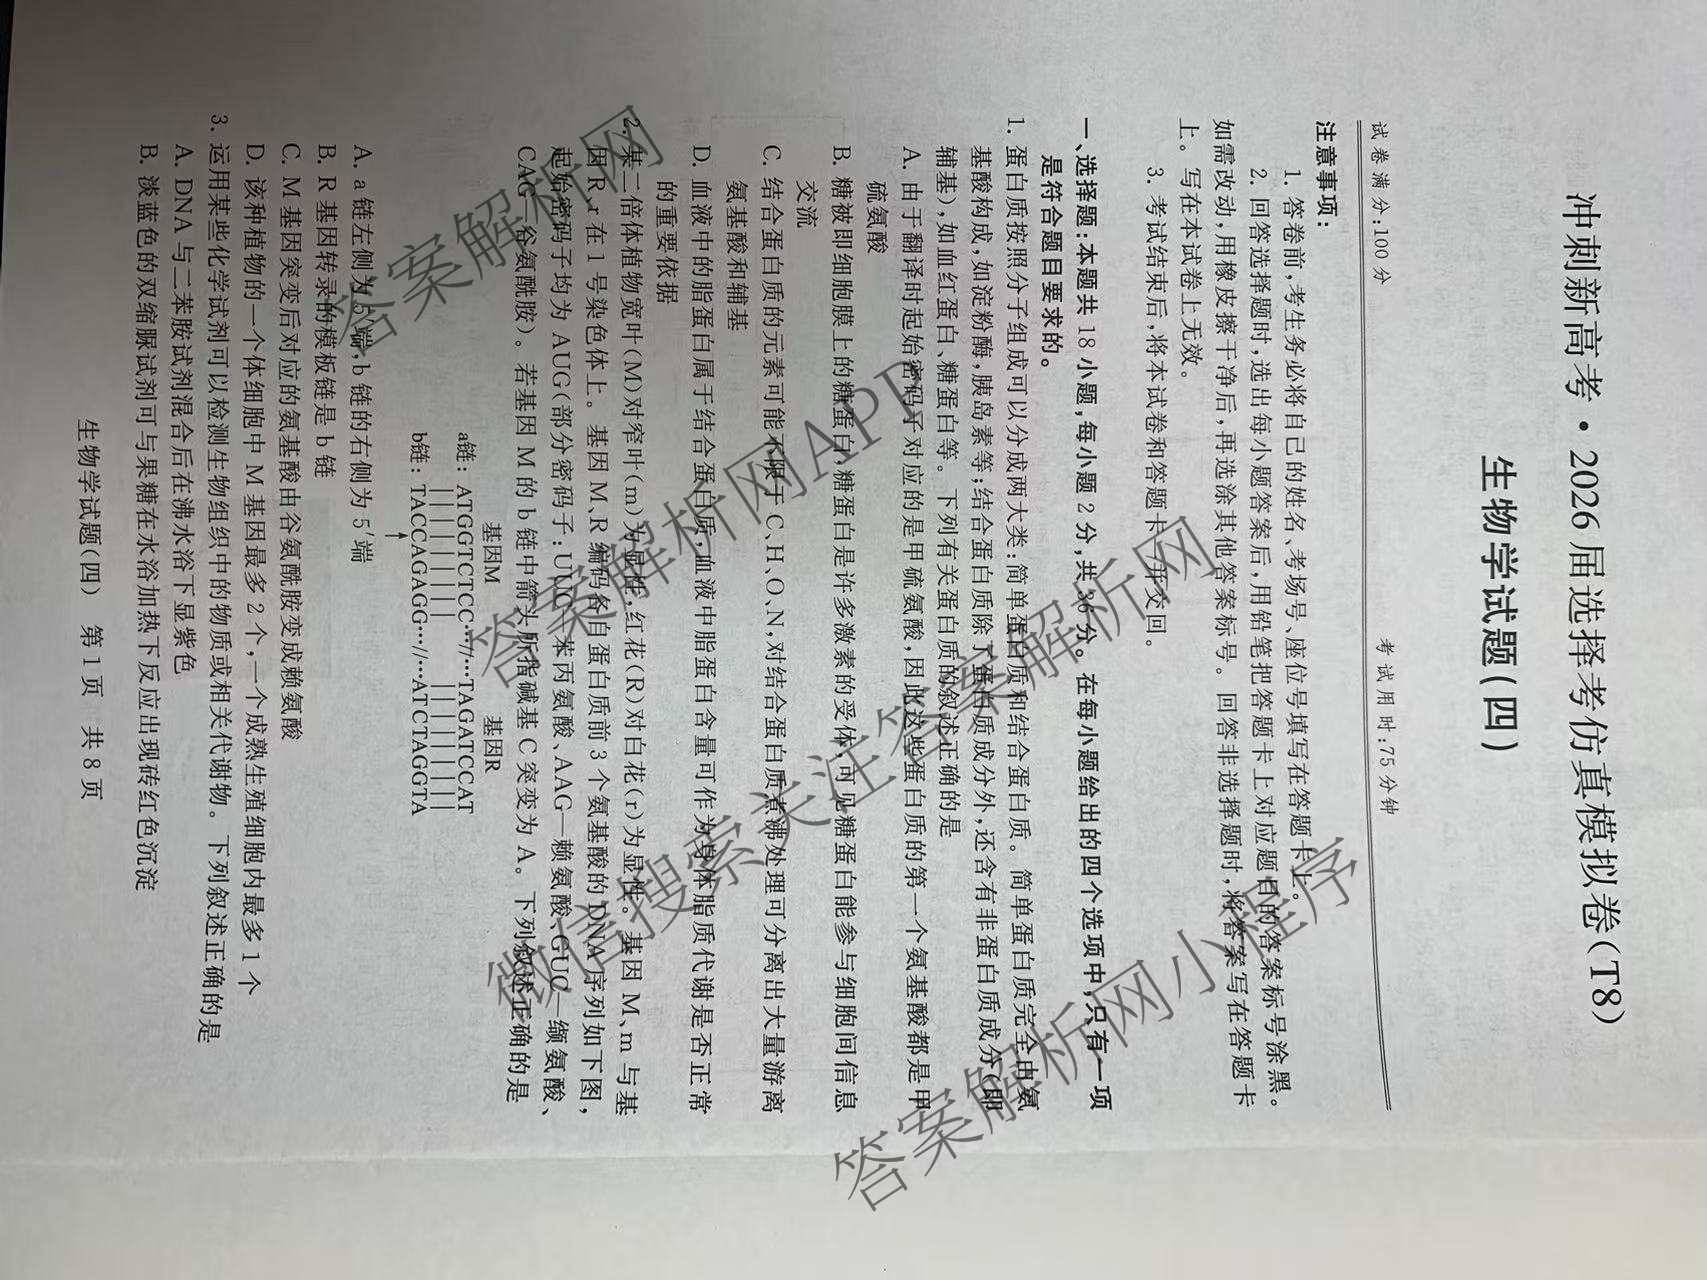 冲刺新高考·2026届选择考仿真模拟卷(T8)
生物学试题(四)
试卷满分:100分 考试用时:75分钟
注意事项:
1. 答卷前,考生务必将自己的姓名、考场号、座位号填写在答题卡上。
2. 回答选择题时,选出每小题答案后,用铅笔把答题卡上对应题目的答案标号涂黑。
如需改动,用橡皮擦干净后,再选涂其他答案标号。回答非选择题时,将答案写在答题卡
上。写在本试卷上无效。
3. 考试结束后,将本试卷和答题卡一并交回。
一、选择题:本题共18小题,每小题2分,共36分。在每小题给出的四个选项中,只有一项
是符合题目要求的。
1. 蛋白质按照分子组成可以分成两大类:简单蛋白质和结合蛋白质。简单蛋白质完全由氨
基酸构成,如淀粉酶,胰岛素等;结合蛋白质除了蛋白质成分外,还含有非蛋白质成分(即
辅基),如血红蛋白、糖蛋白等。下列有关蛋白质的叙述正确的是
A. 由于翻译时起始密码子对应的是甲硫氨酸,因此这些蛋白质的第一个氨基酸都是甲
硫氨酸
B. 糖被即细胞膜上的糖蛋白,糖蛋白是许多激素的受体,可见糖蛋白能参与细胞间信息
交流
C. 结合蛋白质的元素可能不限于C、H、O、N,对结合蛋白质煮沸处理可分离出大量游离
氨基酸和辅基
D. 血液中的脂蛋白属于结合蛋白质,血液中脂蛋白含量可作为身体脂质代谢是否正常
的重要依据
2. 某二倍体植物宽叶(M)对窄叶(m)为显性,红花(R)对白花(r)为显性。基因M、m与基
因R、r在1号染色体上。基因M、R编码各自蛋白质前3个氨基酸的DNA序列如下图,
起始密码子均为AUG(部分密码子:UUC—苯丙氨酸、AAG—赖氨酸、GUC—缬氨酸、
CAG—谷氨酰胺)。若基因M的b链中箭头所指碱基C突变为A。下列叙述正确的是
基因M 基因R
a链: ATGGTCTCC···//···TAGATCCAT
b链: TACCAGAGG···//···ATCTAGGTA
↑
A. a链左侧为5′端,b链的右侧为5′端
B. R基因转录的模板链是b链
C. M基因突变后对应的氨基酸由谷氨酰胺变成赖氨酸
D. 该种植物的一个体细胞中M基因最多2个,一个成熟生殖细胞内最多1个
3. 运用某些化学试剂可以检测生物组织中的物质或相关代谢物。下列叙述正确的是
A. DNA与二苯胺试剂混合后在沸水浴下显紫色
B. 淡蓝色的双缩脲试剂可与果糖在水浴加热下反应出现砖红色沉淀
生物学试题(四) 第1页 共8页
答案解析网
答案解析网APP
微信搜索关注答案解析网
答案解析网小程序